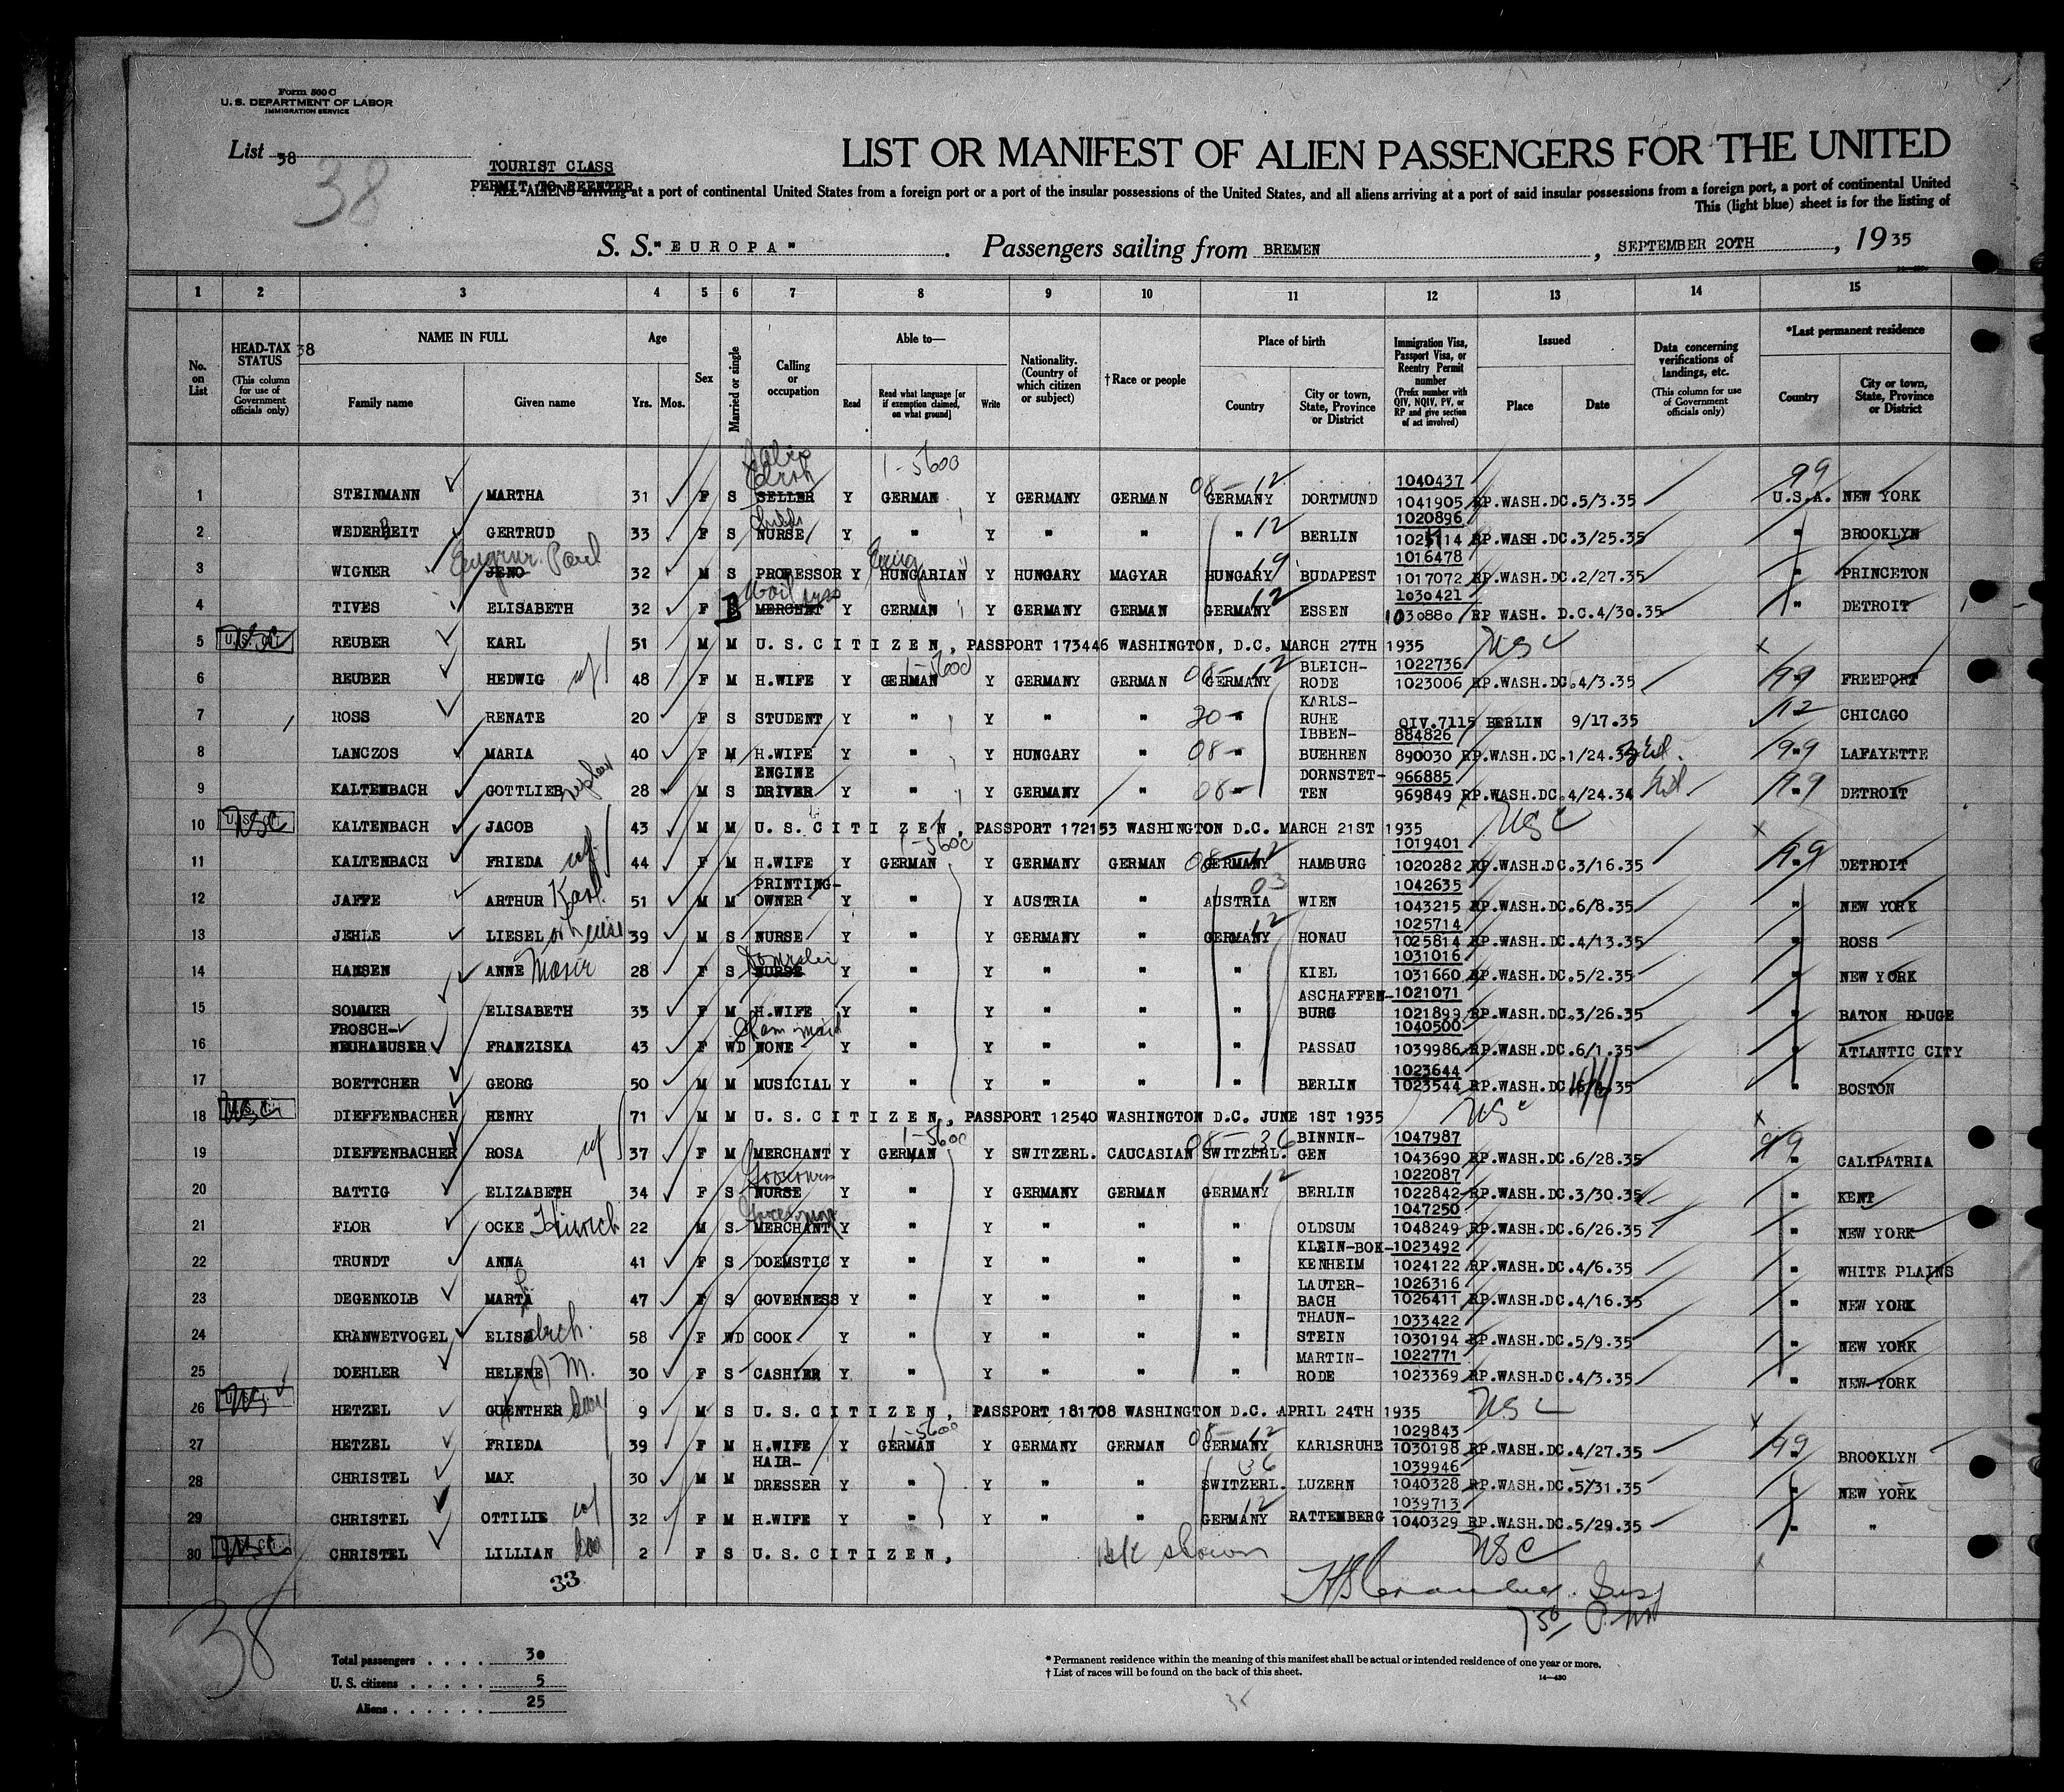 Form 500 C
U. S. DEPARTMENT OF LABOR
IMMIGRATION SERVICE
List 38
38
TOURIST CLASS
PERMIT TO REENTER
LIST OR MANIFEST OF ALIEN PASSENGERS FOR THE UNITED
ALL ALIENS arriving at a port of continental United States from a foreign port or a port of the insular possessions of the United States, and all aliens arriving at a port of said insular possessions from a foreign port, a port of continental United
This (light blue) sheet is for the listing of
S. S. "EUROPA". Passengers sailing from BREMEN, SEPTEMBER 20TH, 1935
1 2 3 4 5 6 7 8 9 10 11 12 13 14 15
No. on List
HEAD-TAX STATUS (This column for use of Government officials only)
38
NAME IN FULL
Family name Given name
Age
Yrs. Mos.
Sex
Married or single
Calling or occupation
Able to—
Read Read what language [or if exemption claimed, on what ground] Write
Nationality. (Country of which citizen or subject)
†Race or people
Place of birth
Country City or town, State, Province or District
Immigration Visa, Passport Visa, or Reentry Permit number (Prefix number with QIV, NQIV, PV, or RP and give section of act involved)
Issued
Place Date
Data concerning verifications of landings, etc. (This column for use of Government officials only)
*Last permanent residence
Country City or town, State, Province or District
1-5600 99
1 STEINMANN MARTHA 31 F S SELLER Y GERMAN Y GERMANY GERMAN 08-12 GERMANY DORTMUND 1040437 1041905 RP.WASH.DC.5/3.35 U.S.A. NEW YORK
2 WEDERBEIT GERTRUD 33 F S NURSE Y " Y " " " 12 BERLIN 1020896 RP.WASH.DC.3/25.35 " BROOKLYN
3 WIGNER JENO Paul 32 M S PROFESSOR Y HUNGARIAN Y HUNGARY MAGYAR HUNGARY 19 BUDAPEST 1016478 1017072 RP.WASH.DC.2/27.35 " PRINCETON
4 TIVES ELISABETH 32 F S MERCHNT Y GERMAN Y GERMANY GERMAN GERMANY 12 ESSEN 1030421 1030880 RP WASH. D.C.4/30.35 " DETROIT
5 USC REUBER KARL 51 M M U.S.CITIZEN, PASSPORT 173446 WASHINGTON, D.C. MARCH 27TH 1935 USC
6 REUBER HEDWIG wf 48 F M H.WIFE Y GERMAN 1-5600 Y GERMANY GERMAN 08-12 GERMANY BLEICH-RODE 1022736 1023006 RP.WASH.DC.4/3.35 99 " FREEPORT
7 ROSS RENATE 20 F S STUDENT Y " Y " " 20- " KARLS-RUHE QIV.7115 BERLIN 9/17.35 12 CHICAGO
8 LANCZOS MARIA 40 F M H.WIFE Y " Y HUNGARY " 08- " IBBEN-BUEHREN 884826 890030 RP.WASH.DC.1/24.3 99 LAFAYETTE
9 KALTENBACH GOTTLIEB nephew 28 M S ENGINE DRIVER Y " Y GERMANY " 08- " DORNSTET-TEN 966885 969849 RP.WASH.DC.4/24.34 99 " DETROIT
10 USC KALTENBACH JACOB 43 M M U.S.CITIZEN, PASSPORT 172153 WASHINGTON D.C. MARCH 21ST 1935 USC
11 KALTENBACH FRIEDA wf 44 F M H.WIFE Y GERMAN 1-5600 Y GERMANY GERMAN 08-12 GERMANY HAMBURG 1019401 1020282 RP.WASH.DC.3/16.35 99 " DETROIT
12 JAFFE ARTHUR Karl 51 M M PRINTING-OWNER Y " Y AUSTRIA " 03 AUSTRIA WIEN 1042635 1043215 RP.WASH.DC.6/8.35 " NEW YORK
13 JEHLE LIESEL or Luise 39 M S NURSE Y " Y GERMANY " GERMANY 12 HONAU 1025714 1025814 RP.WASH.DC.4/13.35 " ROSS
14 HANSEN ANNE 28 F S NURSE Y " Y " " " KIEL 1031016 1031660 RP.WASH.DC.5/2.35 " NEW YORK
15 SOMMER ELISABETH 33 F M H.WIFE Y " Y " " " ASCHAFFEN-BURG 1021071 1021899 RP.WASH.DC.3/26.35 " BATON ROUGE
16 FROSCH-NEUHAEUSER FRANZISKA 43 F WD NONE Cham maid Y " Y " " " PASSAU 1040500 1039986 RP.WASH.DC.6/1.35 " ATLANTIC CITY
17 BOETTCHER GEORG 50 M M MUSICIAL Y " Y " " " BERLIN 1023644 1023544 RP.WASH.DC. 35 " BOSTON
18 USC DIEFFENBACHER HENRY 71 M M U.S.CITIZEN, PASSPORT 12540 WASHINGTON D.C. JUNE 1ST 1935 USC
19 DIEFFENBACHER ROSA wf 37 F M MERCHANT Y GERMAN 1-5600 Y SWITZERL. CAUCASIAN 08-36 SWITZERL. BINNIN-GEN 1047987 1043690 RP.WASH.DC.6/28.35 99 " CALIPATRIA
20 BATTIG ELIZABETH 34 F S NURSE Governess Y " Y GERMANY GERMAN GERMANY 12 BERLIN 1022087 1022842 RP.WASH.DC.3/30.35 " KENT
21 FLOR OCKE Hinrich 22 M S MERCHANT Y " Y " " " OLDSUM 1047250 1048249 RP.WASH.DC.6/26.35 " NEW YORK
22 TRUNDT ANNA 41 F S DOEMSTIC Y " Y " " " KLEIN-BOK-KENHEIM 1023492 1024122 RP.WASH.DC.4/6.35 " WHITE PLAINS
23 DEGENKOLB MARTA 47 F S GOVERNESS Y " Y " " " LAUTER-BACH 1026316 1026411 RP.WASH.DC.4/16.35 " NEW YORK
24 KRANWETVOGEL ELISA 58 F WD COOK Y " Y " " " THAUN-STEIN 1033422 1030194 RP.WASH.DC.5/9.35 " NEW YORK
25 DOEHLER HELENE M. 30 F S CASHIER Y " Y " " " MARTIN-RODE 1022771 1023369 RP.WASH.DC.4/3.35 " NEW YORK
26 HETZEL GUENTHER 9 M S U.S.CITIZEN, PASSPORT 181708 WASHINGTON D.C. APRIL 24TH 1935 USC
27 HETZEL FRIEDA 39 F M H.WIFE Y GERMAN 1-5600 Y GERMANY GERMAN 08-12 GERMANY KARLSRUHE 1029843 1030198 RP.WASH.DC.4/27.35 99 BROOKLYN
28 CHRISTEL MAX 30 M M HAIR-DRESSER Y " Y " " 36 SWITZERL. LUZERN 1039946 1040328 RP.WASH.DC.5/31.35 " NEW YORK
29 CHRISTEL OTTILIE wf 32 F M H.WIFE Y " Y " " 12 GERMANY RATTEMBERG 1039713 1040329 RP.WASH.DC.5/29.35 " "
30 USC CHRISTEL LILLIAN 2 F S U.S.CITIZEN, shown USC
33
38
Total passengers . . . . 30
U. S. citizens . . . . . . 5
Aliens . . . . . . 25
* Permanent residence within the meaning of this manifest shall be actual or intended residence of one year or more.
† List of races will be found on the back of this sheet.
14—430